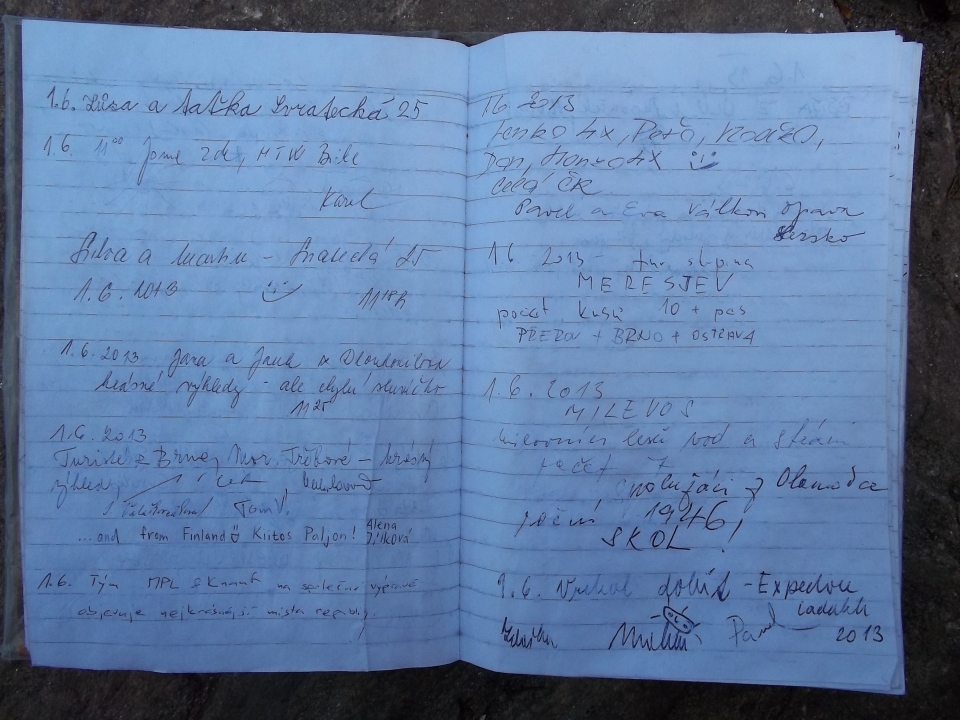 1.6. Lůca a taťka Svratecká 25
1.6. 11⁰⁰ Jsme zde, HTW Bike
Karel
1.6.2013 11¹⁸h
1.6.2013 Jana a
krásné výhledy - ale chybí sluníčko
11²⁵
1.6.2013
Turisté z Brna, Mor. Třebové - krásný
výhledy
Tom V.
...and from Finland Kiitos Paljon! Alena Jílková
1.6. Tým MPL na společné výpravě
objevuje nejkrásnější místa republiky.
1.6 2013
Jenko 4x, Peťo,
Dan, Honza 4x
celá ČR
Pavel a Eva Válkovi Opava
Slezsko
1.6 2013 - tur. skupina
MERESJEV
počet kusů 10 + pes
PŘEROV + BRNO + OSTRAVA
1.6.2013
MILEVOS
milovníci lesů vod a strání
počet 7
spolužáci z Olomouce
ročník 1946!
SKOL!
1.6. Vrchol dobit - Expedice
Ladakh
Pavel 2013